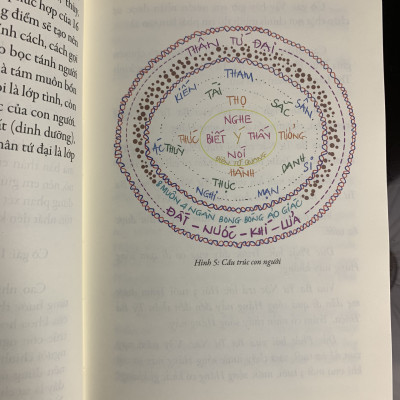 phức hợp của 16
điểm sẽ tạo nên
cách, cách gói
bọc tánh người
tám muôn bốn
là lớp tinh, còn
của con người.
(dinh dưỡng).
tứ đại là lớp
THÂN TỨ ĐẠI
THAM
KIẾN
TÀI
SẮC
SÂN
THỌ
NGHE
THỨC
BIẾT Ý THẤY
TƯỞNG
NÓI
HÀNH
DANH
SI
THỰC
NGHI
MẠN
8 MUÔN 4 NGÀN BONG BÓNG ẢO GIÁC
ĐẤT - NƯỚC - KHÍ - LỬA
Hình 5: Cấu trúc con người